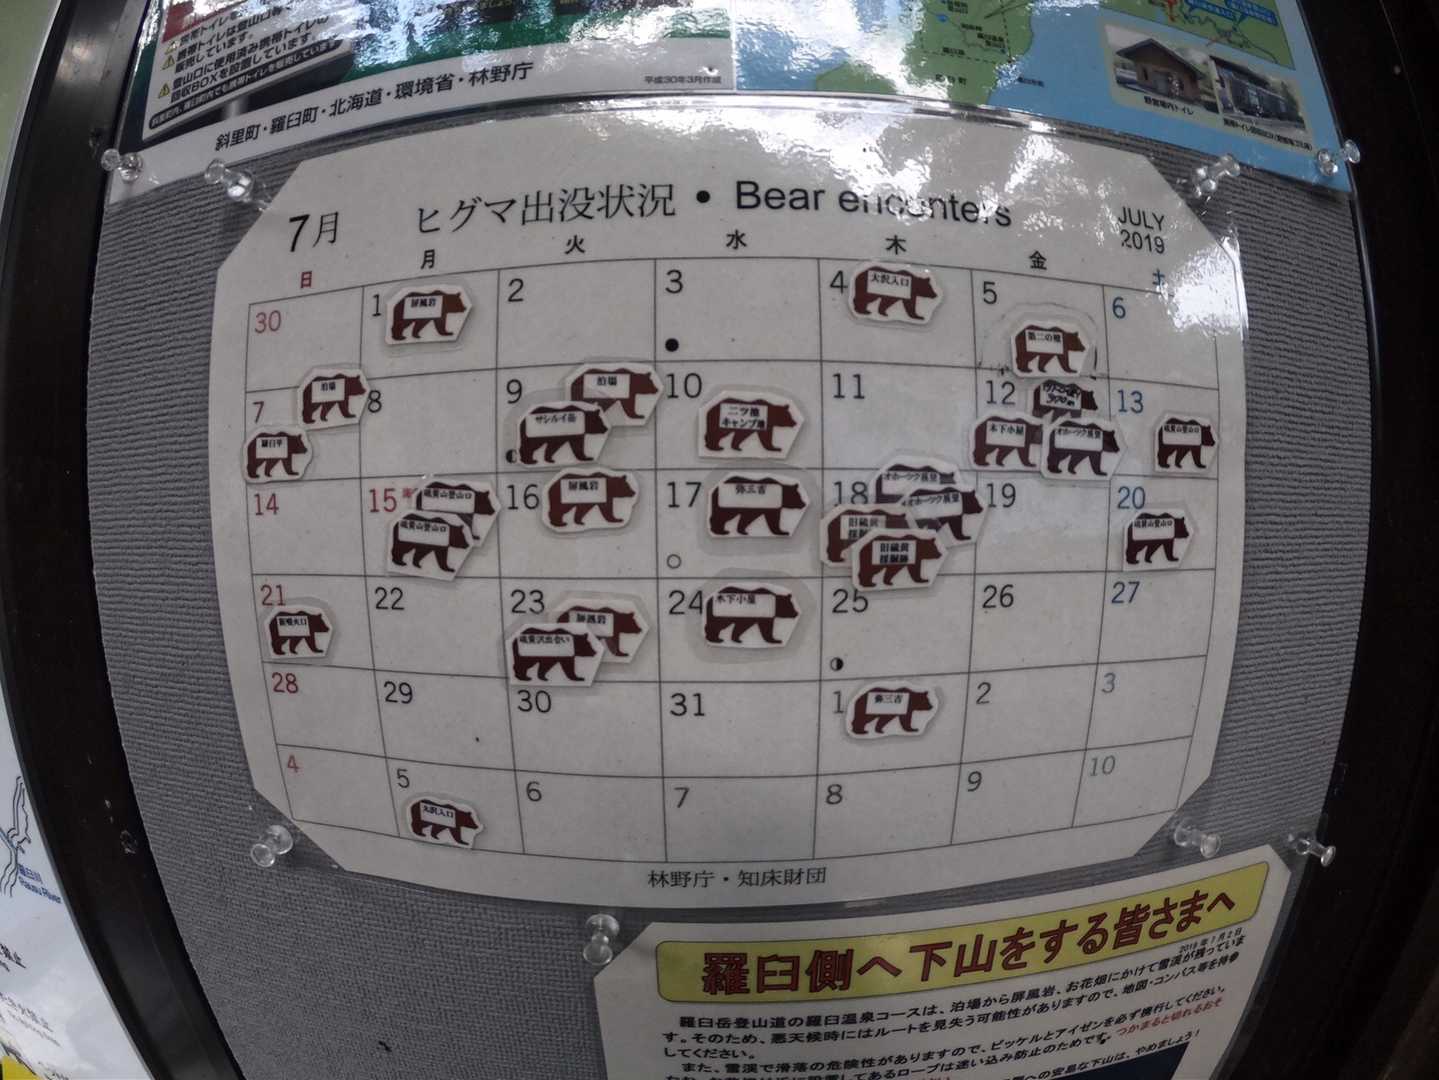 携帯トイレは登山口等、
販売しています。
登山口に使用済み携帯トイレの
回収BOXを設置しています。
斜里町・羅臼町・北海道・環境省・林野庁
平成30年3月作成
野営場内トイレ
7月
ヒグマ出没状況・Bear encounters
JULY
2019
日 月 火 水 木 金 土
30 1 2 3 4 5 6
屏風岩
大沢入口
7 8 9 10 11 12 13
泊場
羅臼平
泊場
サシルイ岳
二ツ池
キャンプ地
木下小屋
オホーツク展望
硫黄山登山口
14 15 16 17 18 19 20
硫黄山登山口
硫黄山登山口
屏風岩
弥三吉
オホーツク展望
オホーツク展望
旧硫黄
旧硫黄
採掘跡
硫黄山登山口
21 22 23 24 25 26 27
新噴火口
屏風岩
硫黄沢出合い
木下小屋
28 29 30 31 1 2 3
弥三吉
4 5 6 7 8 9 10
大沢入口
林野庁・知床財団
羅臼川
Rausu River
羅臼側へ下山をする皆さまへ
羅臼岳登山道の羅臼温泉コースは、泊場から屏風岩、お花畑にかけて雪渓が残っていま
す。そのため、悪天候時にはルートを見失う可能性がありますので、地図・コンパス等を持参
してください。
また、雪渓で滑落の危険性がありますので、ピッケルとアイゼンを必ず携行してください。
設置してあるロープは迷い込み防止のためです。つかまると切れるおそ
への安易な下山は、やめましょう！